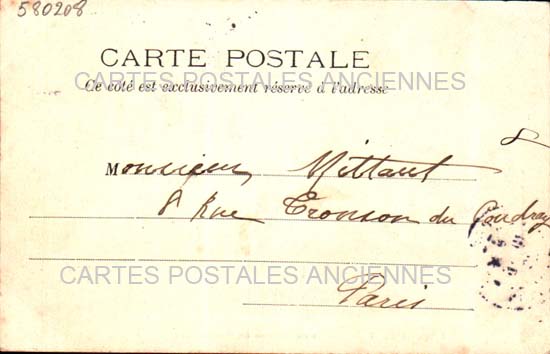 580208
CARTE POSTALE
CARTES POSTALES ANCIENNES
Ce côté est exclusivement réservé à l'adresse
8
Monsieur Mittant
8 Rue Tronson du Coudray
CARTES POSTALES ANCIENNES
Paris